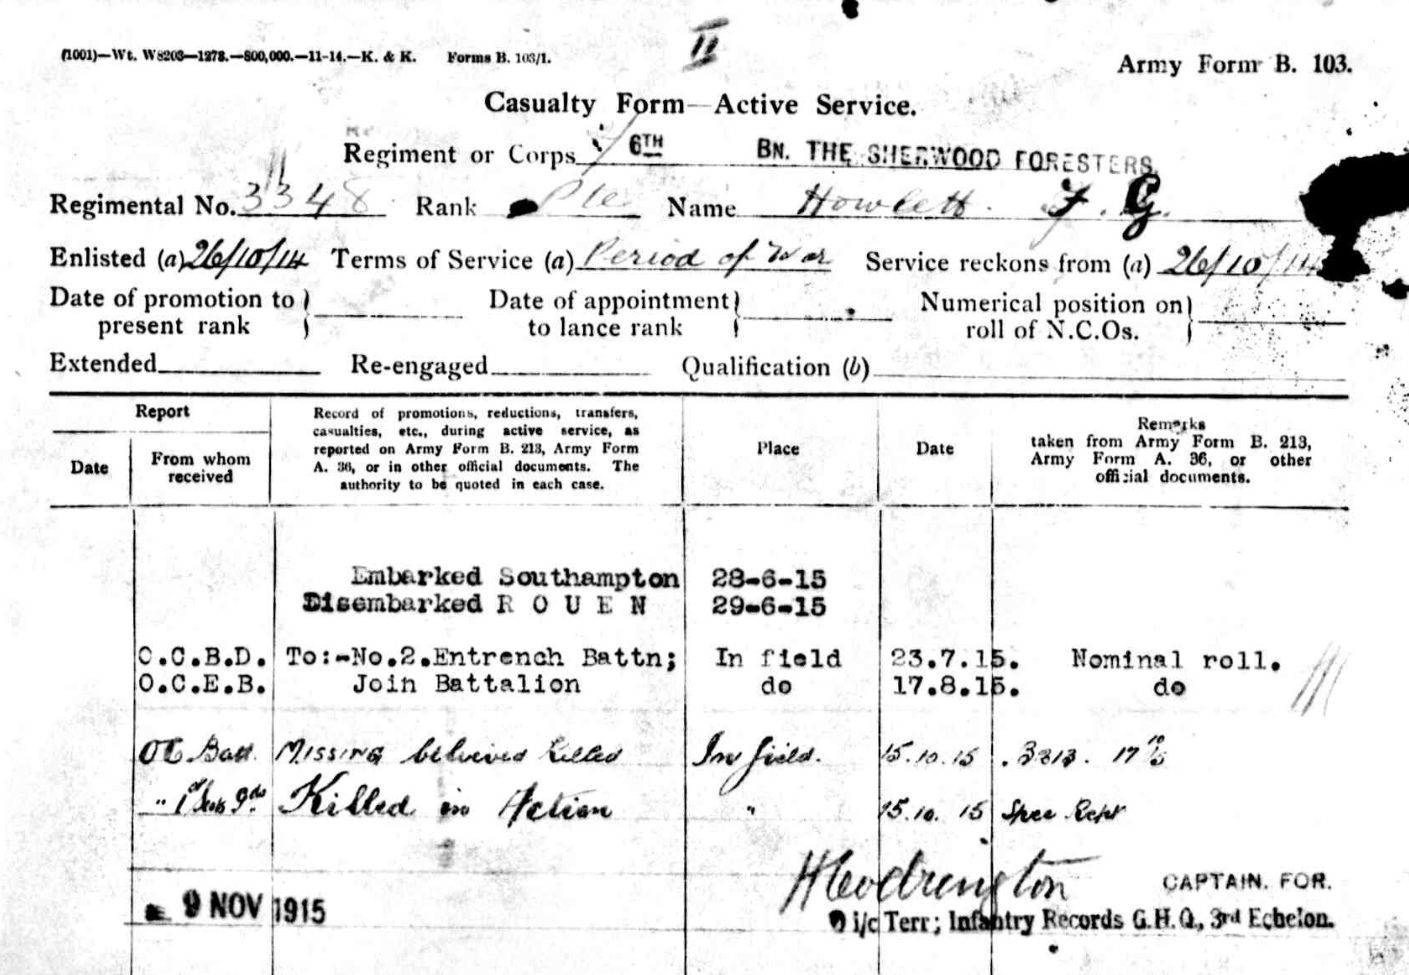 II
(1001)—Wt. W8203—1278.—800,000.—11-14.—K. & K. Forms B. 103/1.
Army Form B. 103.
Casualty Form—Active Service.
Regiment or Corps 6TH BN. THE SHERWOOD FORESTERS.
Regimental No. 3348 Rank Pte Name Howlett F. G.
Enlisted (a) 26/10/14 Terms of Service (a) Period of War Service reckons from (a) 26/10/14
Date of promotion to present rank } Date of appointment to lance rank } Numerical position on roll of N.C.Os. }
Extended Re-engaged Qualification (b)
Report
Date
From whom received
Record of promotions, reductions, transfers,
casualties, etc., during active service, as
reported on Army Form B. 213, Army Form
A. 36, or in other official documents. The
authority to be quoted in each case.
Place
Date
Remarks
taken from Army Form B. 213,
Army Form A. 36, or other
official documents.
Embarked Southampton 28-6-15
Disembarked R O U E N 29-6-15
C.C.B.D. To:-No.2.Entrench Battn; In field 23.7.15. Nominal roll.
O.C.E.B. Join Battalion do 17.8.15. do
OC Batt. Missing believed killed In field. 15.10.15 B213.
" Killed in Action " 15.10.15 Spec Rept
H Codrington CAPTAIN. FOR.
9 NOV 1915
i/c Terr; Infantry Records G.H.Q., 3rd Echelon.